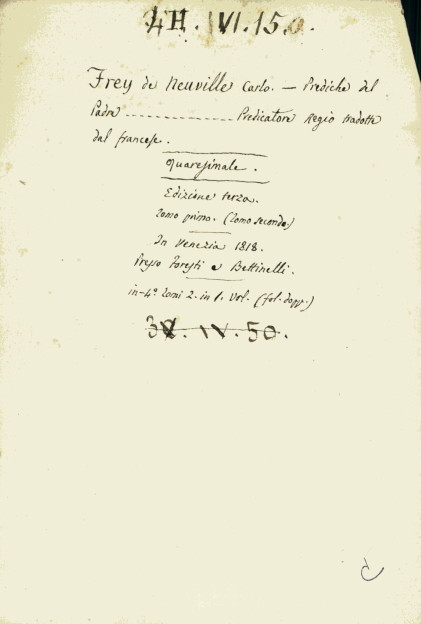 4H. VI. 15.0.
Frey de Neuville Carlo. — Prediche del
Padre --------------- Predicatore Regio tradotte
dal francese.
Quaresimale.
Edizione terza.
Tomo primo. (Tomo secondo)
In Venezia 1818.
Presso Foresti e Bettinelli.
in-4º. Tomi 2. in 1. Vol. (fol. dopp.)
IV. 50.